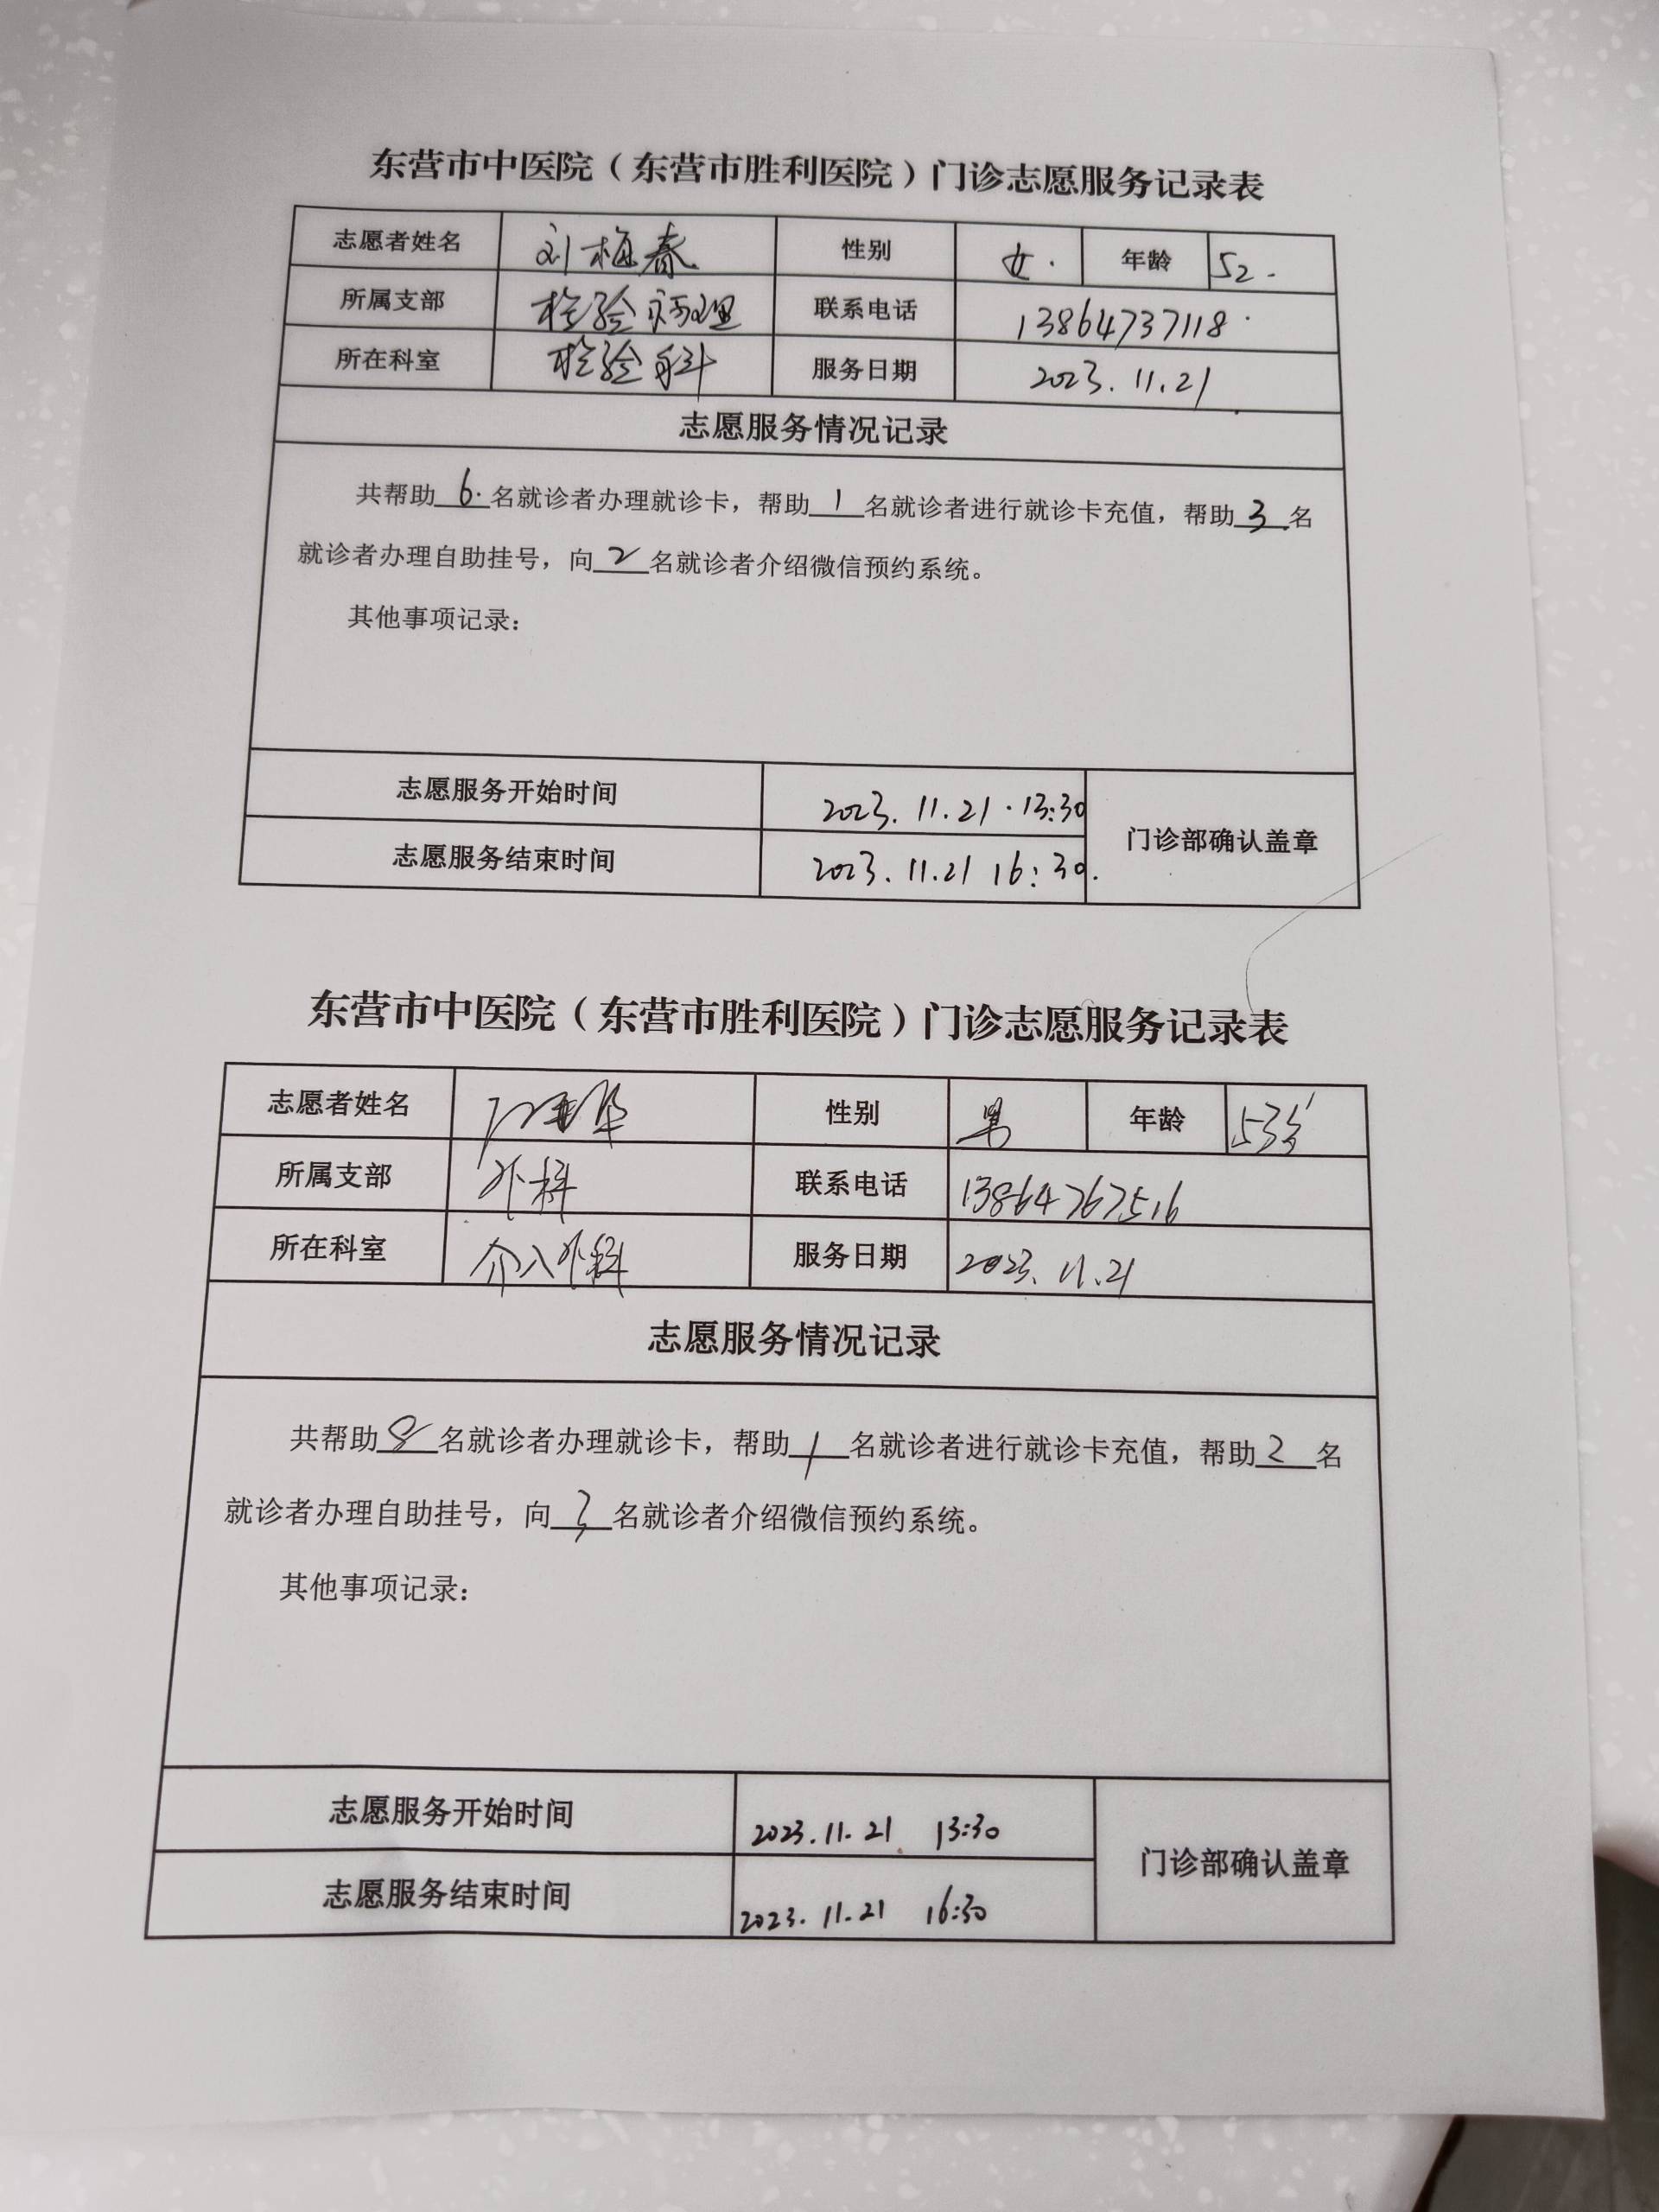 东营市中医院（东营市胜利医院）门诊志愿服务记录表
志愿者姓名 刘梅春 性别 女. 年龄 52.
所属支部 检验病理 联系电话 13864737118.
所在科室 检验科 服务日期 2023.11.21
志愿服务情况记录
共帮助6.名就诊者办理就诊卡，帮助1名就诊者进行就诊卡充值，帮助3名
就诊者办理自助挂号，向2名就诊者介绍微信预约系统。
其他事项记录：
志愿服务开始时间 2023.11.21.13:30
门诊部确认盖章
志愿服务结束时间 2023.11.21 16:30.
东营市中医院（东营市胜利医院）门诊志愿服务记录表
志愿者姓名 性别 男 年龄 53岁
所属支部 外科 联系电话 13864767516
所在科室 介入外科 服务日期 2023.11.21
志愿服务情况记录
共帮助8名就诊者办理就诊卡，帮助1名就诊者进行就诊卡充值，帮助2名
就诊者办理自助挂号，向3名就诊者介绍微信预约系统。
其他事项记录：
志愿服务开始时间 2023.11.21 13:30
门诊部确认盖章
志愿服务结束时间 2023.11.21 16:30